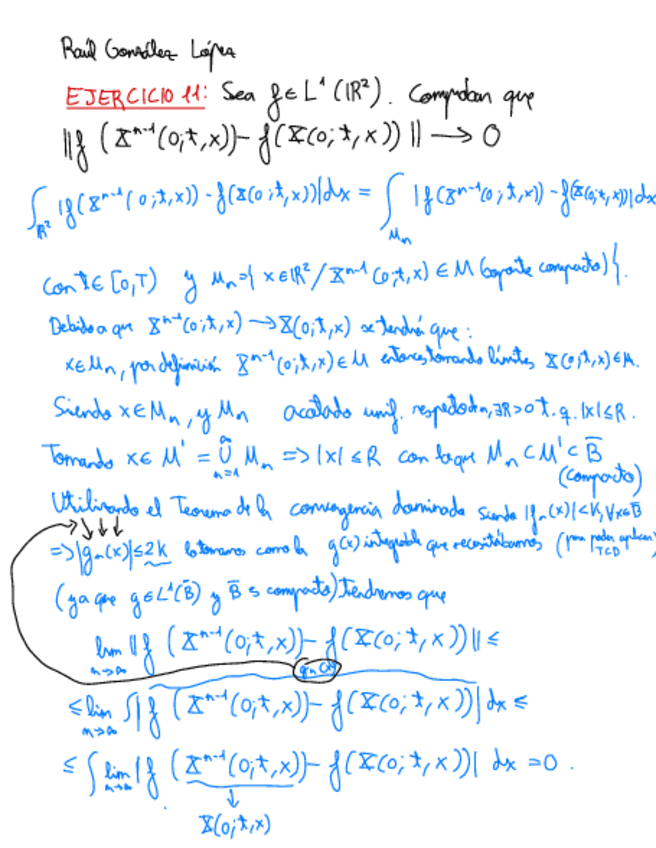 Raúl González López
EJERCICIO 11: Sea f∈L¹(ℝ²). Comprobar que
||f (X^{n-1}(0;t,x)) - f(X(0;t,x))|| → 0
∫_{ℝ²} |f(X^{n-1}(0;t,x)) - f(X(0;t,x))|dx = ∫_{M_n} |f(X^{n-1}(0;t,x)) - f(X(0;t,x))|dx
Con t∈[0,T) y M_n={x∈ℝ²/X^{n-1}(0;t,x)∈M (soporte compacto)}.
Debido a que X^{n-1}(0;t,x) → X(0;t,x) se tendrá que:
x∈M_n, por definición X^{n-1}(0;t,x)∈M entonces tomando límites X(0;t,x)∈M.
Siendo x∈M_n, y M_n acotado unif. respecto de n, ∃R>0 t.q. |x|≤R.
Tomando x∈ M' = ⋃_{n=1}^{∞} M_n => |x| ≤R con lo que M_n ⊂ M' ⊂ B̄
(compacto)
Utilizando el Teorema de la convergencia dominada siendo |f_n(x)|<K, ∀x∈B̄
=> |g_n(x)|≤2K lo tomamos como la g(x) integrable que necesitábamos (para poder aplicar TCD)
(ya que g∈L¹(B̄) y B̄ es compacto) Tendremos que
lim_{n→∞} ||f (X^{n-1}(0;t,x)) - f(X(0;t,x))|| ≤
g_n(x)
≤ lim_{n→∞} ∫|f (X^{n-1}(0;t,x)) - f(X(0;t,x))| dx ≤
≤ ∫ lim_{n→∞} |f (X^{n-1}(0;t,x)) - f(X(0;t,x))| dx =0.
↓
X(0;t,x)